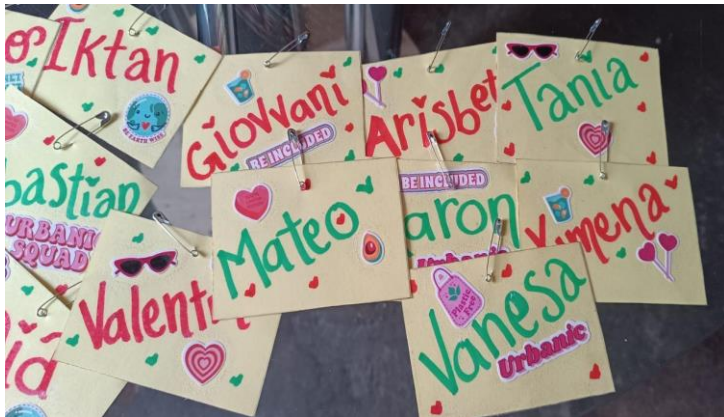 Iktan
BE EARTH WISE
Giovvani
BE INCLUDED
Arisbet
Tania
bastian
URBANI
SQUAD
Mateo
BE INCLUDED
aron
Urbanic
Ximena
Valenti
Plastic
Free
Vanesa
Urbanic